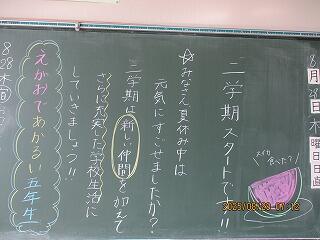 8月28日木曜日
日直
二学期スタートです!!
☆みなさん夏休み中は
元気にすごせましたか?
二学期は新しい仲間を加えて
さらに充実した学校生活に
していきましょう!!
えがおであかるい五年生
8
28
木
スイカ
食べた?
2025/08/28 07:12